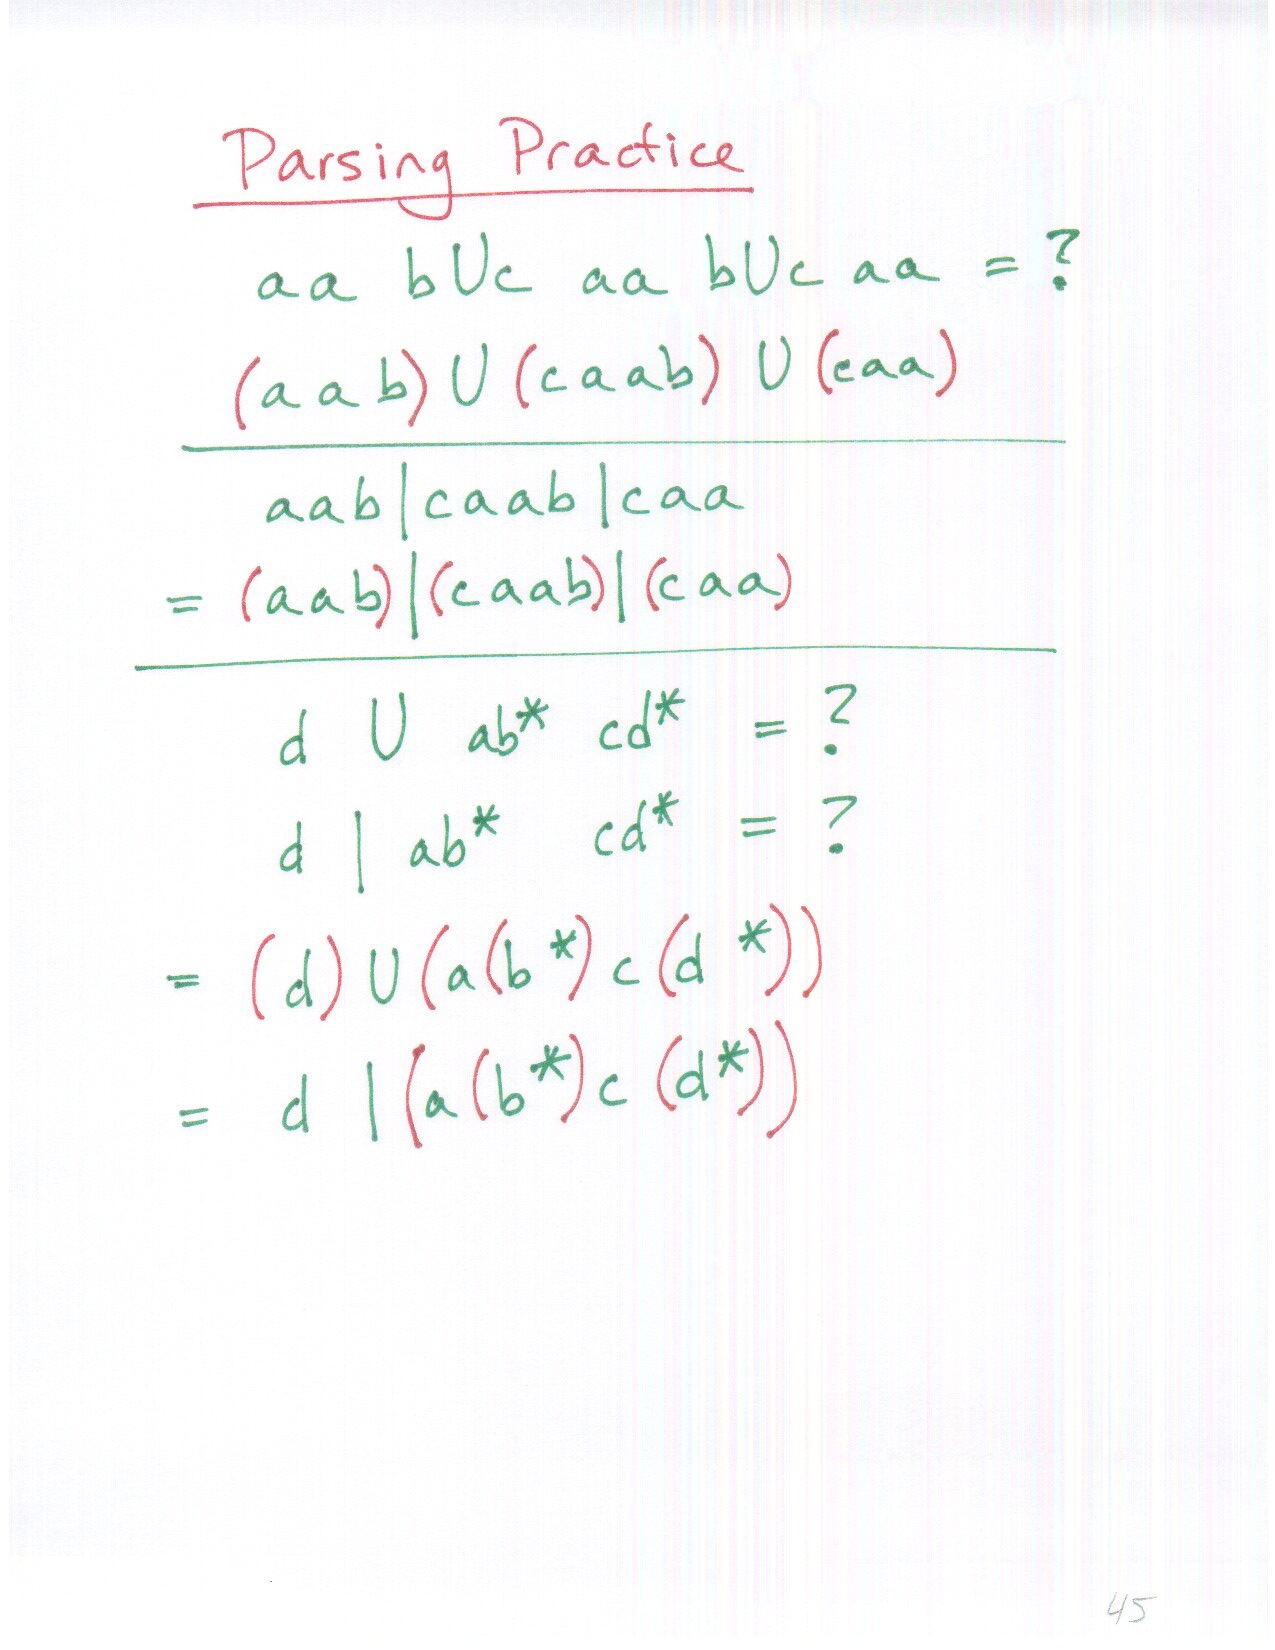 Parsing Practice
aa bUc aa bUc aa = ?
(aab) U (caab) U (caa)
aab|caab|caa
= (aab)|(caab)|(caa)
d U ab* cd* = ?
d | ab* cd* = ?
= (d) U (a(b*) c (d *))
= d | (a (b*) c (d*))
45